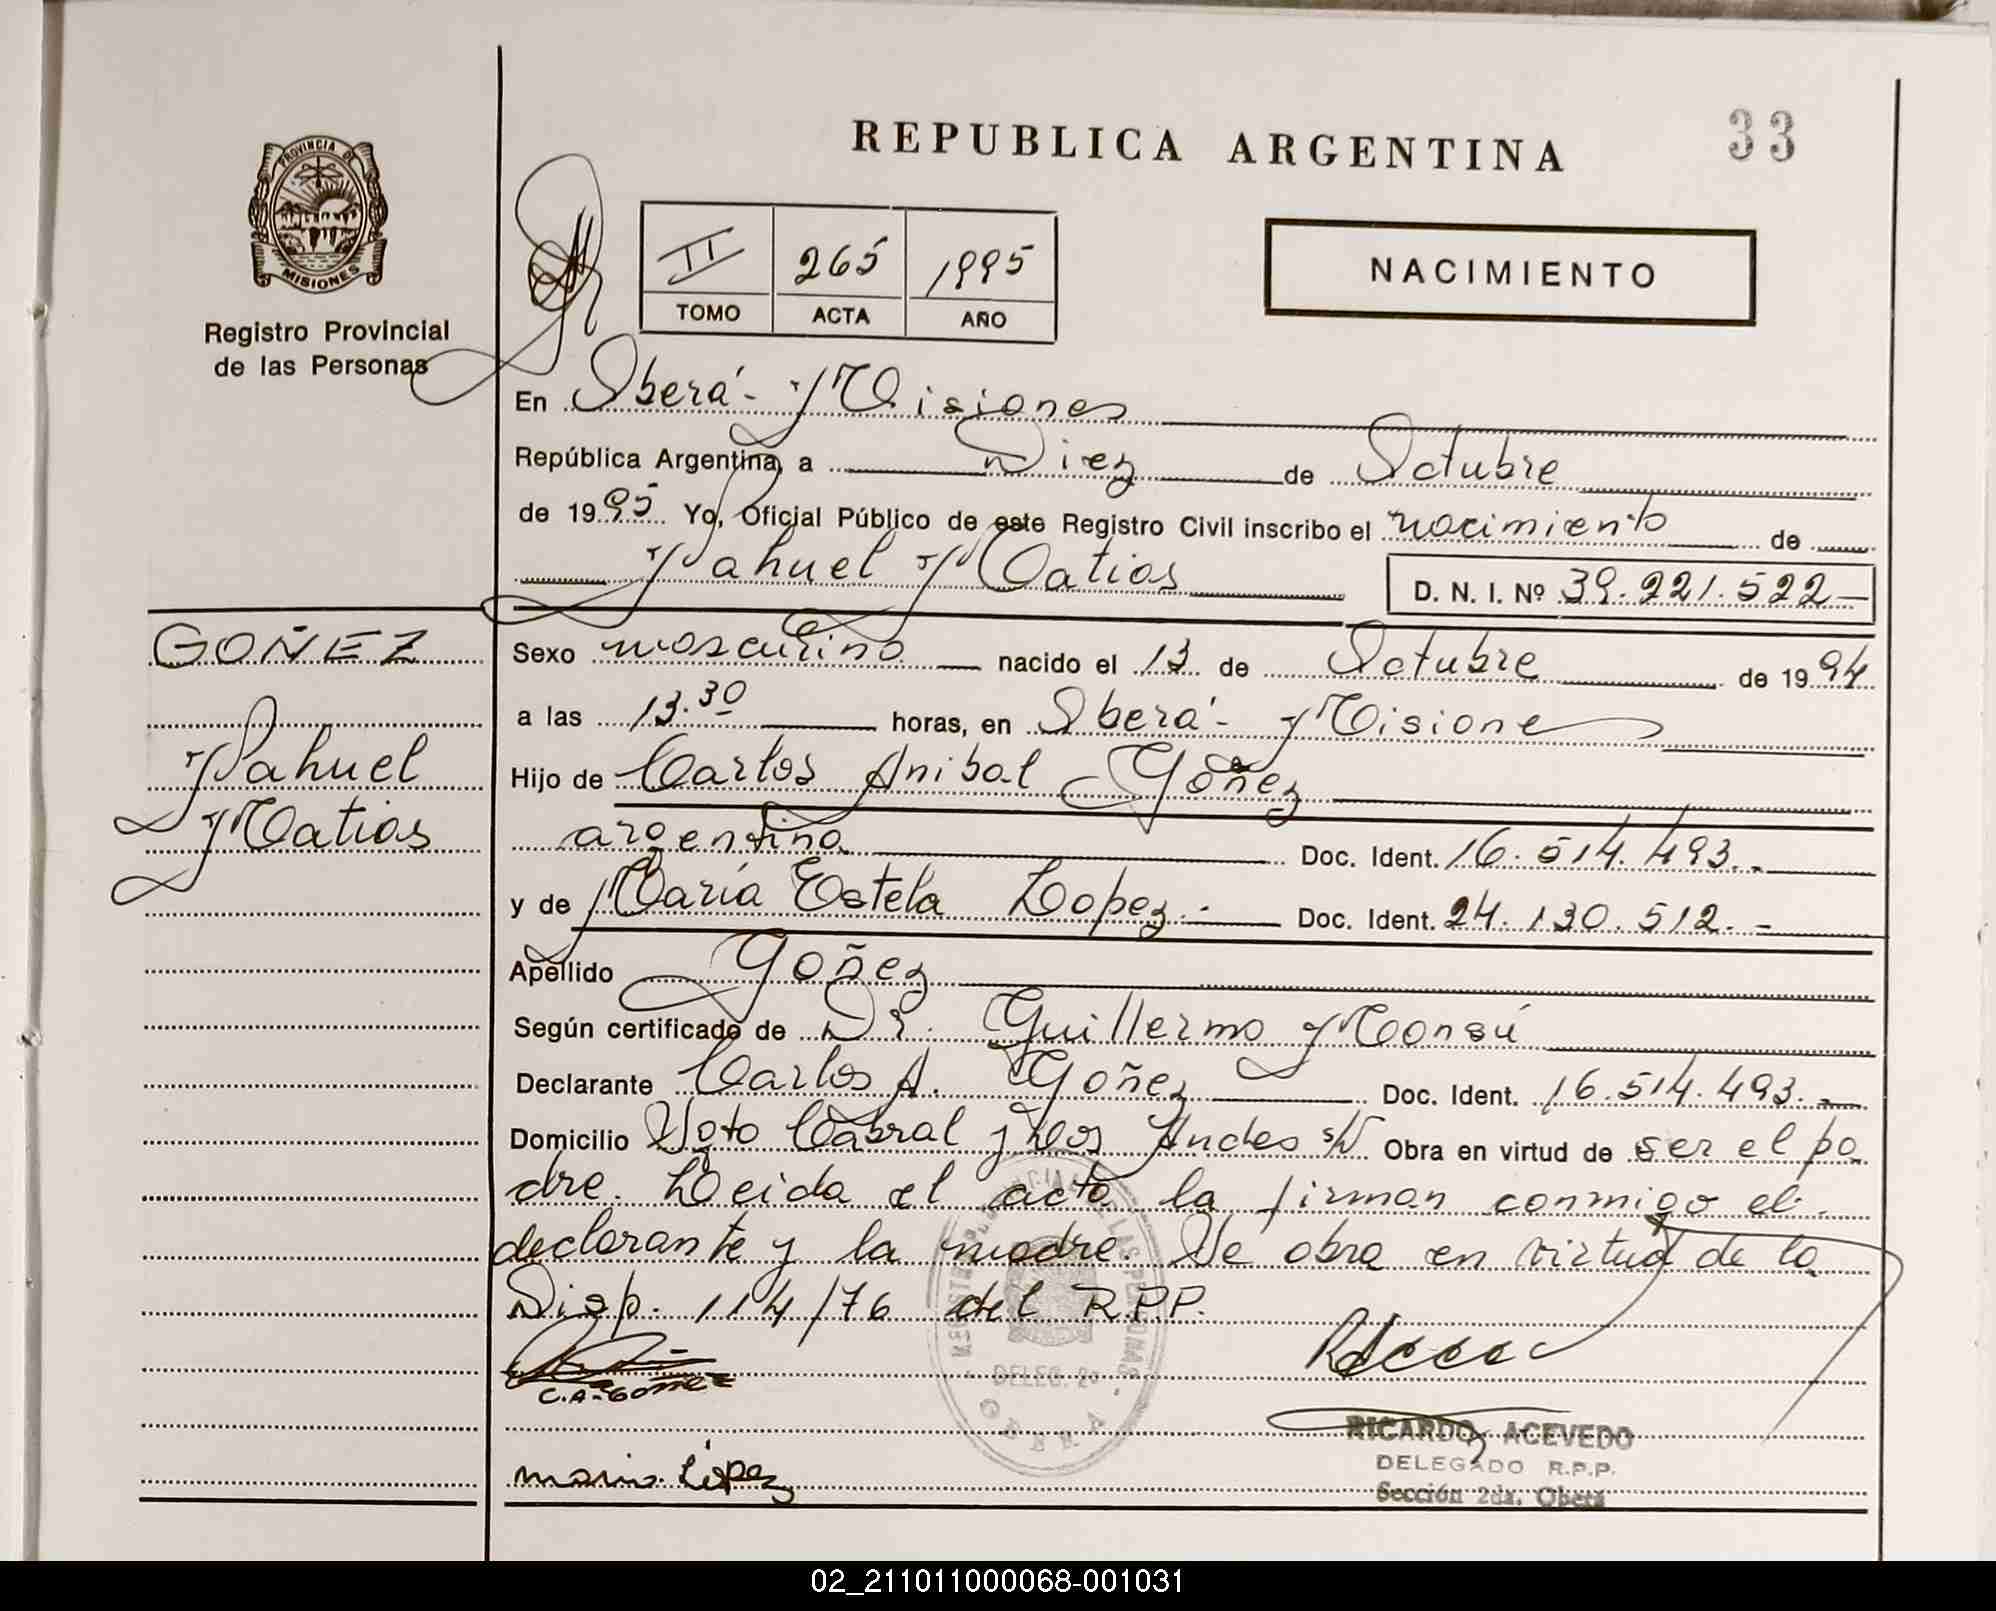 REPUBLICA ARGENTINA
33
PROVINCIA DE
MISIONES
Registro Provincial
de las Personas
II 265 1995
TOMO ACTA AÑO
NACIMIENTO
En Oberá - Misiones
República Argentina, a Diez de Octubre
de 1995 Yo, Oficial Público de este Registro Civil inscribo el nacimiento de
Nahuel Matias D. N. I. Nº 39.221.522-
GOÑEZ
Nahuel
Matias
Sexo masculino nacido el 13 de Octubre de 1994
a las 13.30 horas, en Oberá - Misiones
Hijo de Carlos Anibal Goñez
argentino Doc. Ident. 16.514.493.-
y de María Estela Lopez.- Doc. Ident. 24.130.512.-
Apellido Goñez
Según certificado de Dr. Guillermo Monsú
Declarante Carlos A. Goñez Doc. Ident. 16.514.493.-
Domicilio Soto Cabral y Los Andes s/N Obra en virtud de ser el pa
dre. Leida el acta la firman conmigo el
declarante y la madre. Se obra en virtud de la
Disp. 114/76 del R.P.P.
REGISTRO PROVINCIAL DE LAS PERSONAS
DELEG. 2º
OBERA
C.A. Goñez
RICARDO ACEVEDO
DELEGADO R.P.P.
Sección 2da. Oberá
maria López
02_211011000068-001031